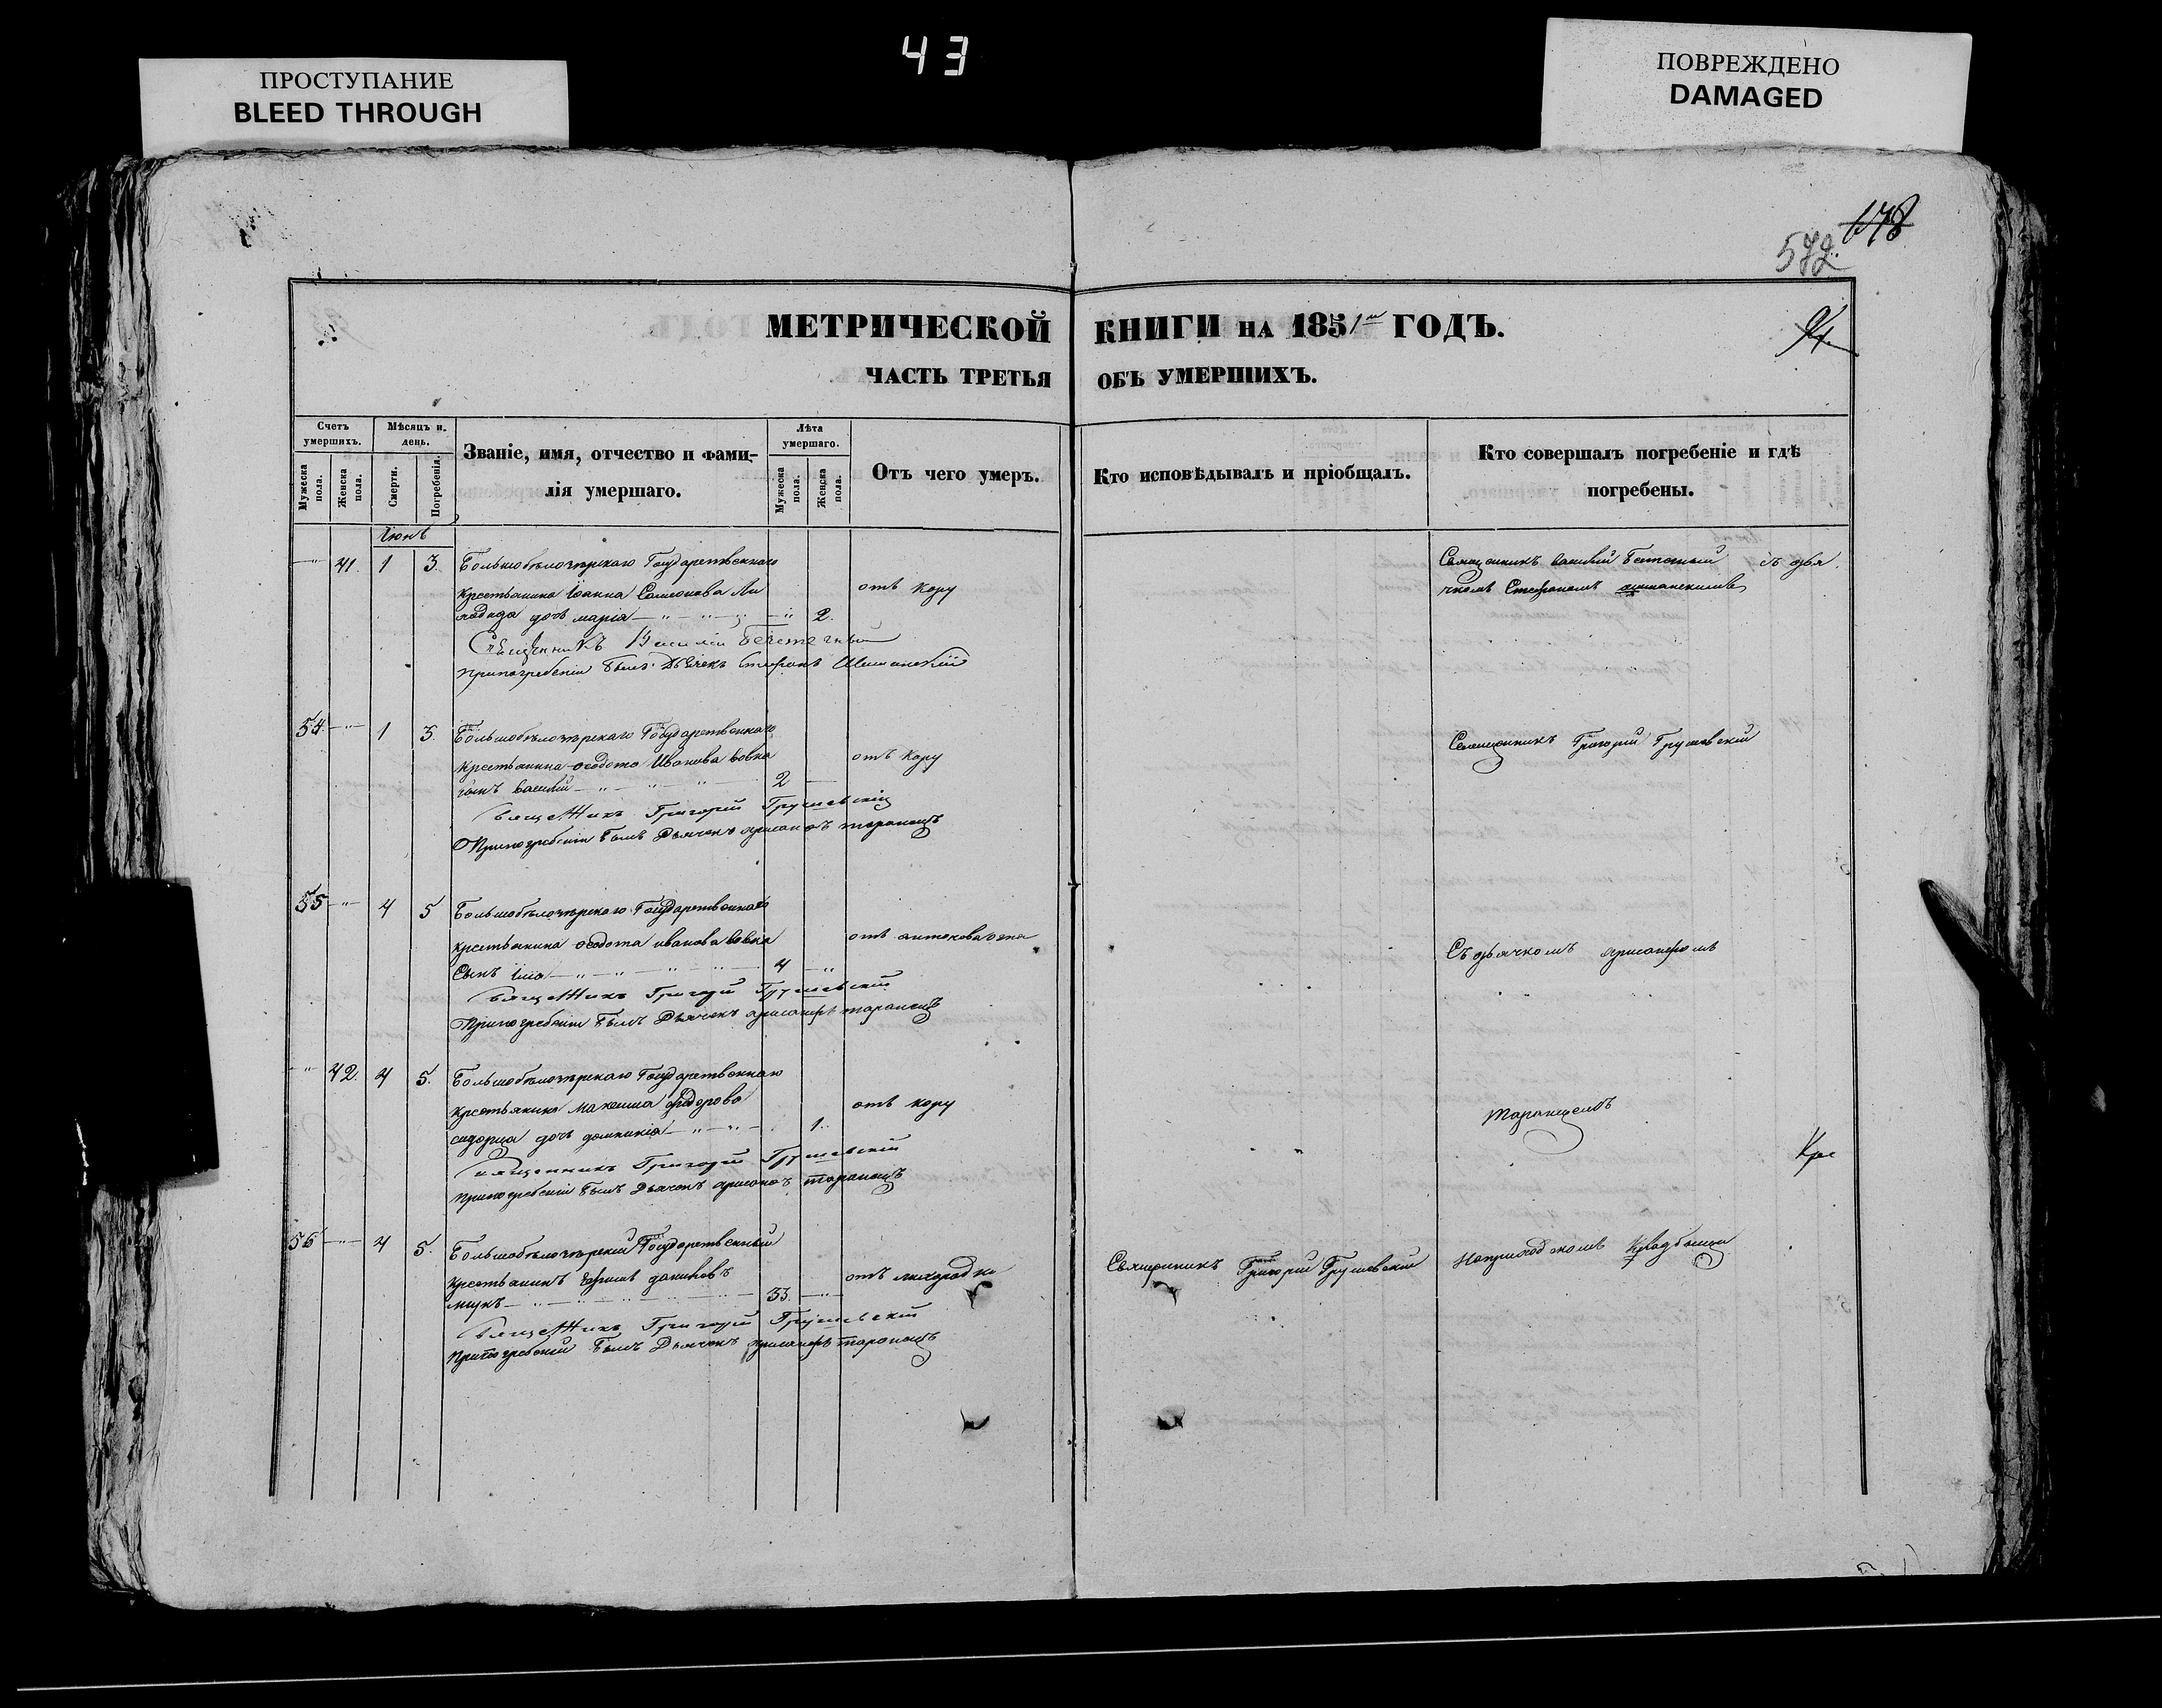 43
ПРОСТУПАНИЕ
BLEED THROUGH
ПОВРЕЖДЕНО
DAMAGED
178
572
МЕТРИЧЕСКОЙ КНИГИ НА 1851 ГОДЪ.
ЧАСТЬ ТРЕТЬЯ ОБЪ УМЕРШИХЪ.
Счетъ умершихъ.
Мужеска пола.
Женска пола.
Мѣсяцъ и день.
Смерти.
Погребенія.
Званіе, имя, отчество и фамилія умершаго.
Лѣта умершаго.
Мужеска пола.
Женска пола.
Отъ чего умеръ.
Кто исповѣдывалъ и пріобщалъ.
Кто совершалъ погребеніе и гдѣ погребены.
Іюнь
41. 1 3. Большобѣлозѣрскаго Государственнаго
крестьянина Іоанна Самсонова
дочь марія 2. отъ кору
Священникъ Василій
При погребеніи былъ Дьячекъ Стефанъ Шиманскій
Священникъ василій съ дья
чкомъ Стефаномъ шиманскимъ
54. 1 3. Большобѣлозѣрскаго Государственнаго
крестьянина ѳеодота Иванова вовка
сынъ василій 2 отъ кору
Священникъ Григорій Грушевскій
При погребеніи былъ Дьячекъ таранецъ
Священникъ Григорій Грушевскій
55 4 5 Большобѣлозѣрскаго Государственнаго
крестьянина ѳеодота иванова вовка
Сынъ Ілія 4 отъ антонова огня
Священникъ Григорій Грушевскій
При погребеніи былъ Дьячекъ таранецъ
Съ дьячкомъ
42. 4 5. Большобѣлозѣрскаго Государственнаго
крестьянина Максима Федорова
дочь домникія 1. отъ кору
Священникъ Григорій Грушевскій
При погребеніи былъ Дьячекъ таранецъ
таранцемъ
56 4 5. Большобѣлозѣрскій Государственный
крестьянинъ Ефимъ даниловъ
33. отъ лихорадки
Священникъ Григорій Грушевскій
При погребеніи былъ Дьячекъ таранецъ
Священникъ Григорій Грушевскій
На приходскомъ кладбищѣ